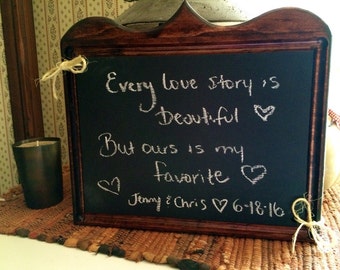 Every love story is
Beautiful
But ours is my
favorite
Jenny & Chris 6-18-16